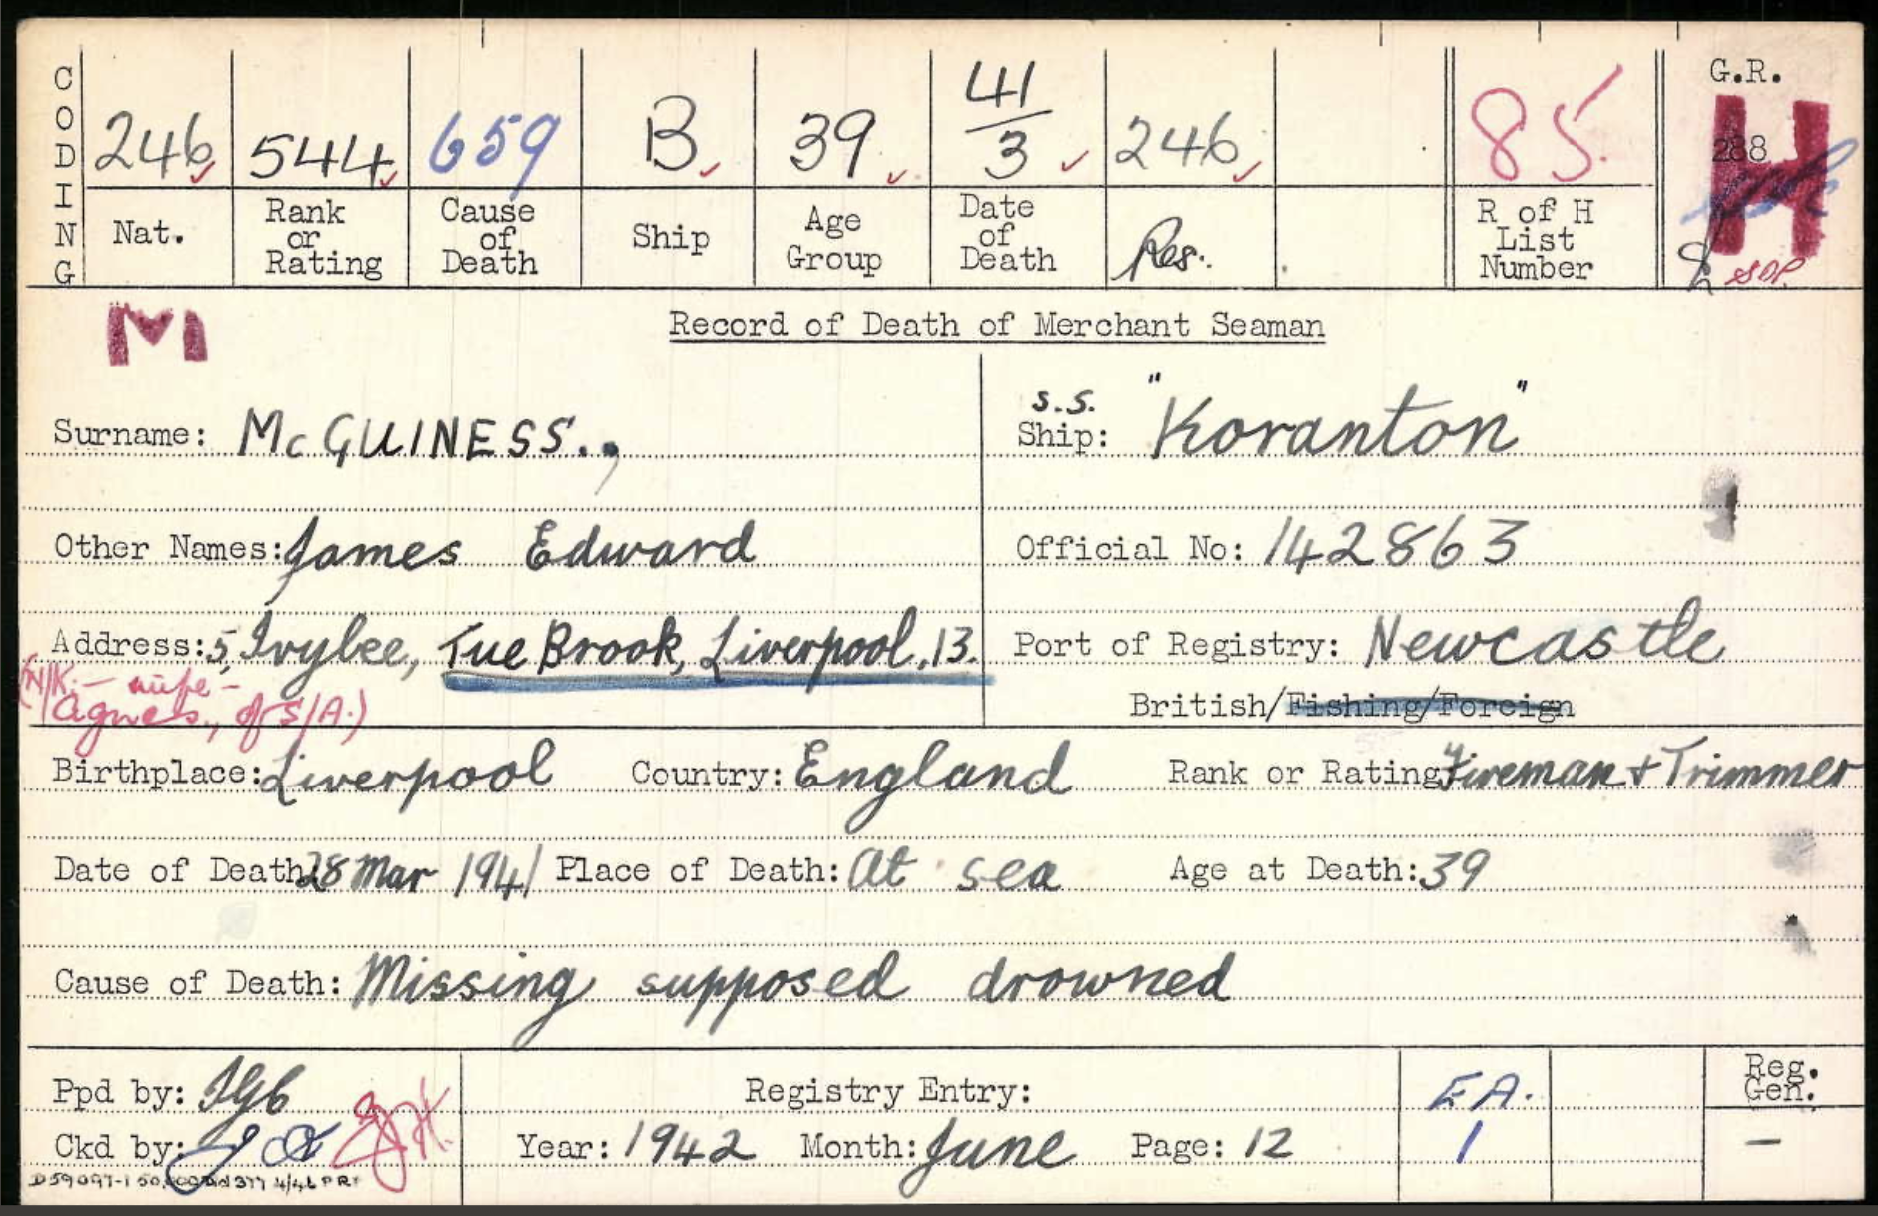 CODING
246 544 659 B 39 41/3 246 85 G.R.
H
288
Nat. Rank or Rating Cause of Death Ship Age Group Date of Death Res. R of H List Number
SDP.
M
Record of Death of Merchant Seaman
Surname: McGUINESS.,
s.s.
Ship: "Koranton"
Other Names: James Edward
Official No: 142863
Address: 5, Ivylee, Tue Brook, Liverpool, 13.
(N/K. – wife –
Agnes, of S/A.)
Port of Registry: Newcastle
British/Fishing/Foreign
Birthplace: Liverpool Country: England Rank or Rating: Fireman + Trimmer
Date of Death: 28 Mar 1941 Place of Death: At sea Age at Death: 39
Cause of Death: Missing supposed drowned
Ppd by:
Ckd by:
Registry Entry:
Year: 1942 Month: June Page: 12
EA.
1
Reg. Gen.
—